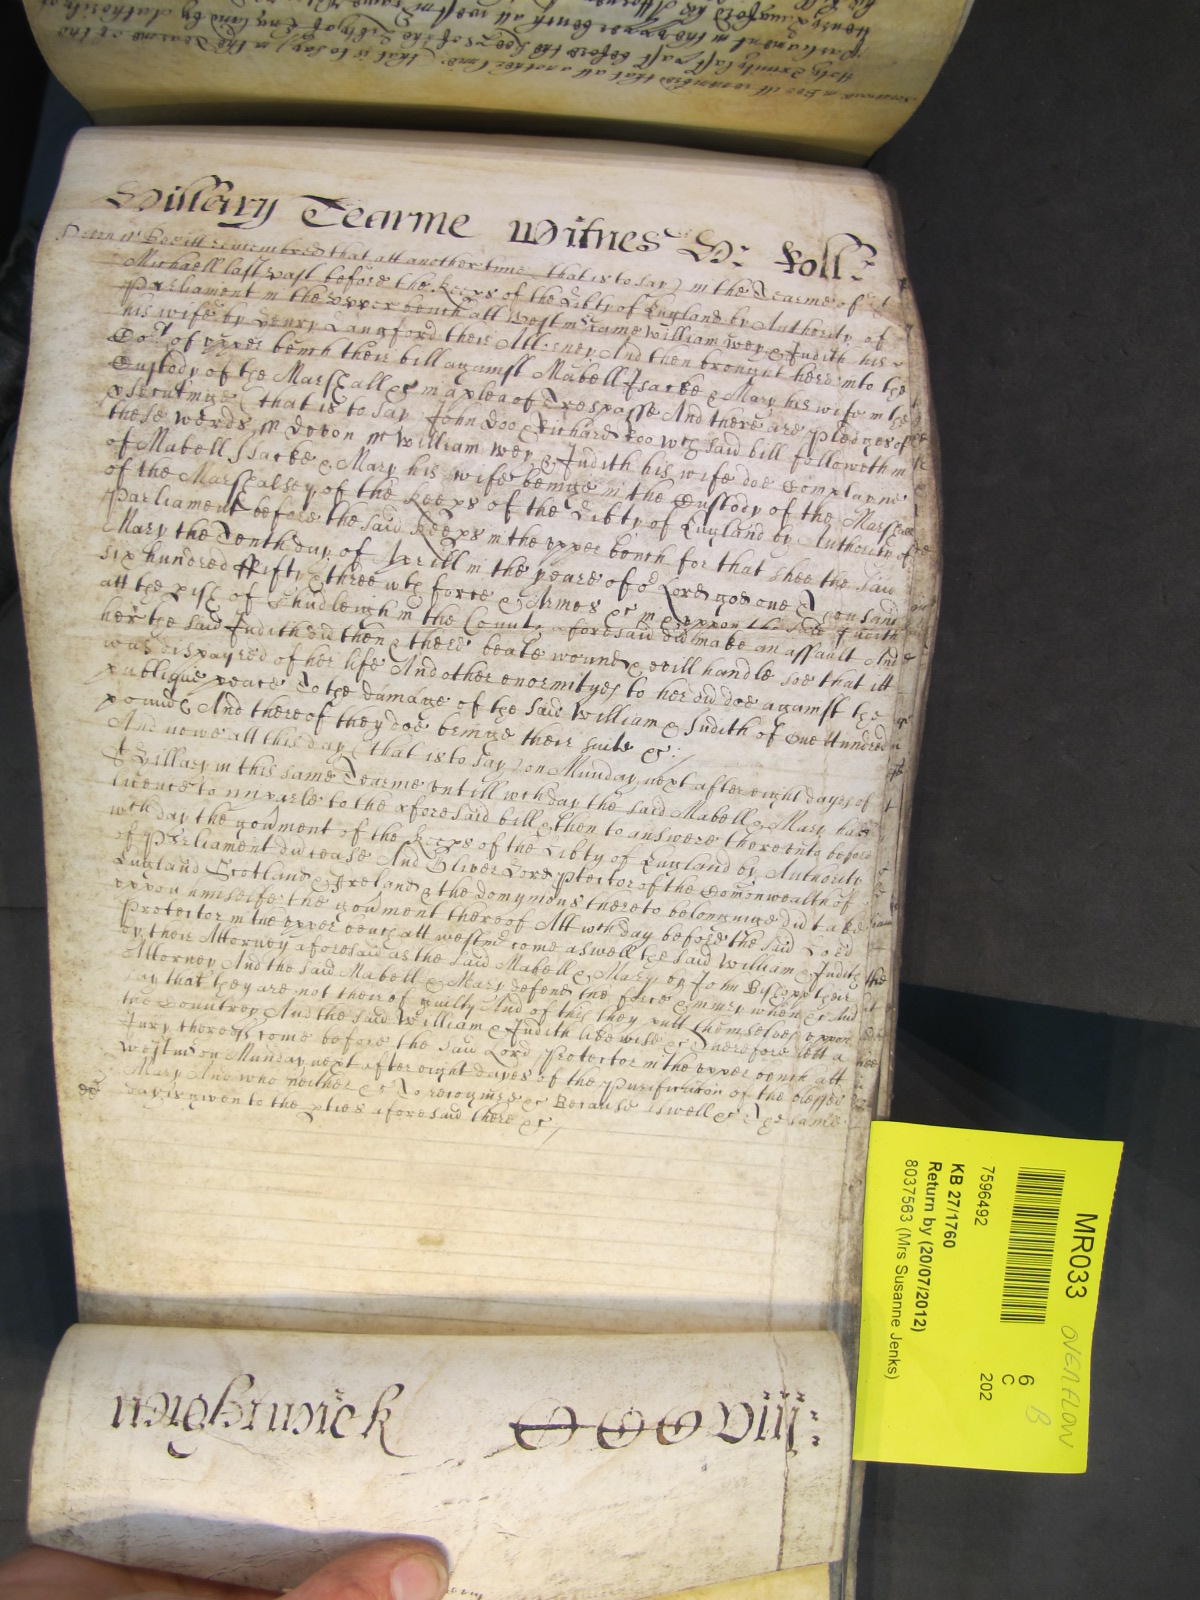 Hillary Tearme Witnes H: Roll:
Devon ss Bee itt remembred that att another time (that is to say) in the Tearme of St
Michaell last past before the Keeps of the Libty of England by Authority of
Parliament in the upper bench att Westmr came William Wey & Judith his
his wife by Henry Langford their Attorney And then brought here into the
Cort of upper bench their bill against Mabell Isacke & Mary his wife in the
Custody of the Marshall &c in a plea of Trespasse And there are pledges of
psecutinge (that is to say) John Doo & Richard Roo wch said bill followeth in
these words ss Devon ss William Wey & Judith his wife doe Complayne
of Mabell Isacke & Mary his wife beinge in the Custody of the Marshall
of the Marshalsey of the Keeps of the Libty of England by Authority of
Parliament before the said Keeps in the upper bench for that shee the said
Mary the Tenth day of Aprill in the yeare of or Lord god one Thousand
six hundred ffifty & three wth force & Armes &c in & uppon the said Judith
att the pish of Chudleigh in the County aforesaid did make an assault And
her the said Judith did then & there beate wound & evill handle soe that itt
was dispayred of her life And other enormityes to her did doe against the
publique peace To the damage of the said William & Judith of One Hundred
pounds And thereof they doe bringe their suite &c:/
And nowe att this day (that is to say) on Munday next after eight dayes of
St Hillary in this same Tearme untill wch day the said Mabell & Mary had
licence to imparle to the aforesaid bill & then to answere thereunto before
wch day the govment of the Keeps of the Libty of England by Authority
of Parliament did cease And Oliver Lord ptector of the Comonwealth of
England Scotland & Ireland & the domynions thereto belonginge did take
uppon himselfe the govment thereof Att wch day before the said Lord
Protector in the upper bench att Westmr come aswell the said William & Judith
by their Attorney aforesaid as the said Mabell & Mary by John Bishopp their
Attorney And the said Mabell & Mary defend the force & iniury when &c And
say that they are not thereof guilty And of this they putt themselves uppon
the Countrey And the said William & Judith likewise &c Therefore lett a
Jury thereof come before the said Lord Protector in the upper bench att
Westmr on Munday next after eight dayes of the Purification of the blessed
Mary And who neither &c To recognise &c Because aswell &c The same
day is given to the pties aforesaid there &c/
Wightwick
CCCViii:
MR033
OVERFLOW
B
6
C
202
7596492
KB 27/1760
Return by (20/07/2012)
8037563 (Mrs Susanne Jenks)